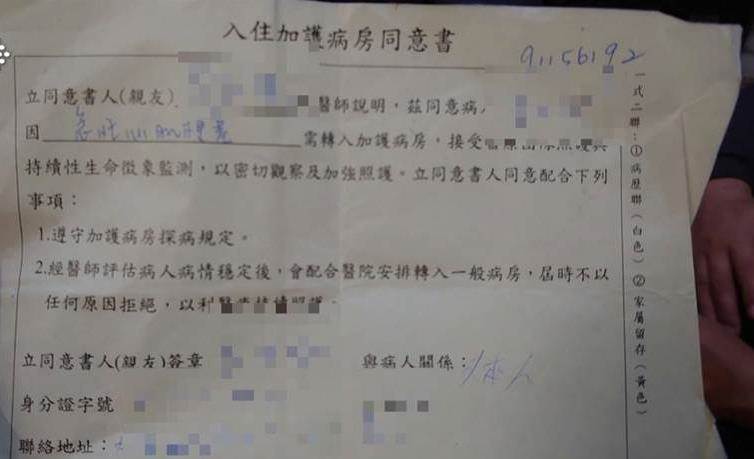 入住加護病房同意書
91156192
立同意書人(親友) 醫師說明，茲同意病
因急性心肌梗塞需轉入加護病房，接受
持續性生命徵象監測，以密切觀察及加強照護。立同意書人同意配合下列
事項：
1.遵守加護病房探病規定。
2.經醫師評估病人病情穩定後，會配合醫院安排轉入一般病房，屆時不以
任何原因拒絕，以利
立同意書人(親友)簽章
與病人關係：本人
身分證字號
聯絡地址：
一式二聯：①病歷聯(白色)②家屬留存(黃色)